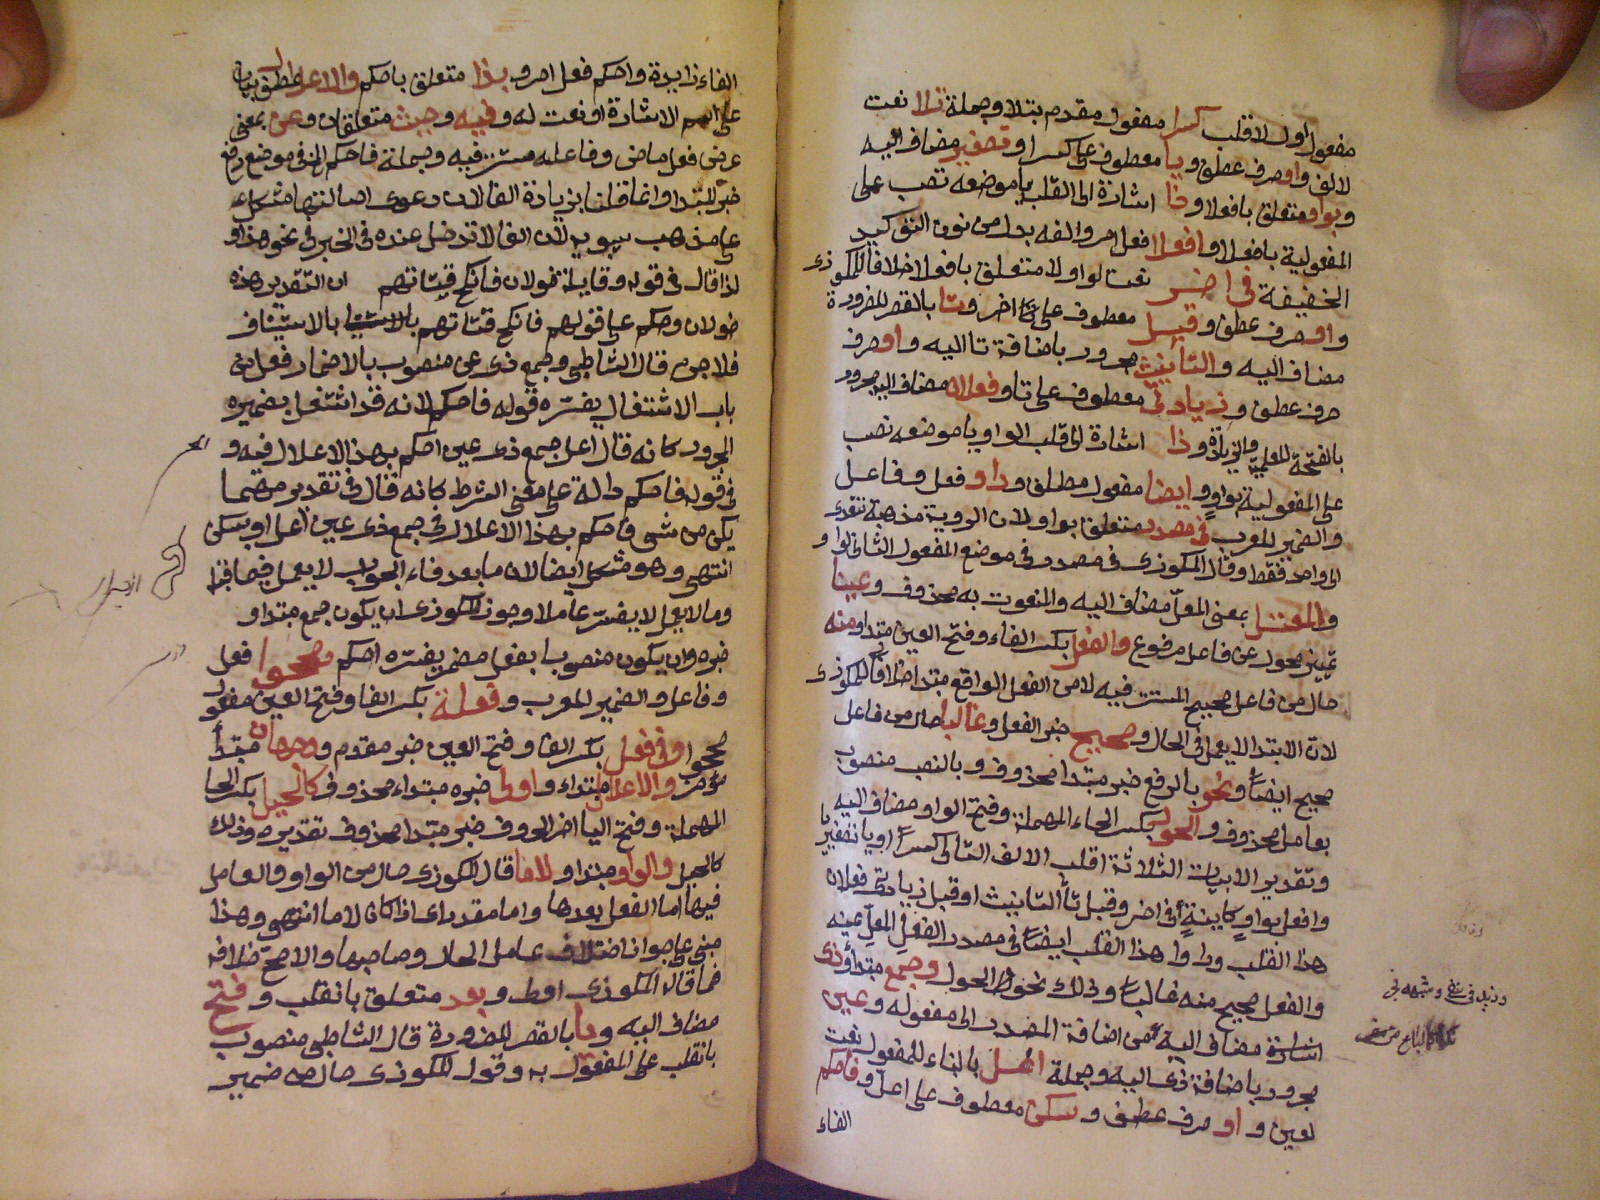 مفعول اول لاقلب كسرا مفعول مقدم بتلا وجملة تلا نعت
لالف واو حرف عطف ويا معطوف على كسرا او تصغير مضاف اليه
وبواو متعلق بافعلا وذا اشارة الى القلب يا موضعه نصب على
المفعولية بافعلا وافعلا فعل امر والفه بدل من نون التوكيد
الخفيفة في اخر نعت لواو لا متعلق بافعلا خلافا للمكودي
واو حرف عطف وقبل معطوف على اخر وتا بالقصر للضرورة
مضاف اليه والتانيث مجرور باضافة تا اليه واو حرف
حرف عطف وزيادتي معطوف على تا وفعلان مضاف اليه مجرور
بالفتحة للعلمية والزيادة وذا اشارة الى قلب الواو يا موضعه نصب
على المفعولية بواو وايضا مفعول مطلق وراو فعل وفاعل
والضمير للعرب في مصدر متعلق بواو لان الروية مذهبة تتعدى
الى واحد فقط وقال المكودي في مصدر في موضع المفعول الثاني لراو
والمعتل بمعنى المعل مضاف اليه والمنعوت به محذوف وعينا
تمييز محول عن فاعل مرفوع والفعل بكسر الفاء وفتح العين مبتدا ومنه
حال من فاعل صحيح المستتر فيه لا من الفعل الواقع مبتدا خلافا للمكودي
لان الابتدا لا يعمل في الحال وصحيح خبر الفعل وغالبا حال من فاعل
صحيح ايضا ونحو بالرفع خبر مبتدا محذوف وبالنصب منصوب
بعامل محذوف والحول بكسر الحاء المهملة وفتح الواو مضاف اليه
وتقدير الابيات الثلاثة اقلب الالف التالي كسرا او يا تصغير يا
وافعل بواو كاينة في اخر وقبل تا التانيث او قبل زيادتي فعلان
هذا القلب وراوا هذا القلب ايضا في مصدر الفعل المعل عينه
والفعل صحيح منه غالبا وذلك نحو الحول وجمع مبتدا وذي
مضاف اليه من اضافة المصدر الى مفعوله وعين
مجرور باضافة ذي اليه وجملة اعل بالبناء للمفعول نعت
لعين و او حرف عطف و سكن معطوف على اعل وفاحكم
الفاء
الفاء زايدة واحكم فعل امر و بذا متعلق باحكم والاعلال عطف بيان
على اسم الاشارة او نعت له وفيه وحيث متعلقان وعن بمعنى
عرض فعل ماضى وفاعله مستتر فيه وجملة فاحكم الخ في موضع رفع
خبر المبتدا وانما قلنا بزيادة الفا لان دعوى اصالتها مشكل
على مذهب سيبويه لان الفا لا تدخل عنده في الخبر في نحو هذا و
لذا قال في قوله وقايلة خولان فانكح فتاتهم ان التقدير هذه
خولان وحكم على قولهم فانكح فتاتهم بالاستيناف
فلا جرم قال الشاطبي وجمع ذي عين منصوب بالاضمار فعل من
باب الاشتغال يفسره قوله فاحكم لانه قد اشتغل بضميره
المجرور كانه قال اعل جمع ذي عين احكم بهذا الاعلال فيه و
في قوله فاحكم دالة على معنى الشرط كانه قال في تقدير مهما
يكن من شي فاحكم بهذا الاعلال في جمع ذي عين اعل او سكن
انتهى وهو مشكل ايضا لان ما بعد فاء الجواب لا يعمل فيما قبلها
وما لا يعمل لا يفسر عاملا وجوز المكودي ان يكون جمع مبتدا و
خبره وان يكون منصوبا بفعل مضمر يفسره احكم وصححوا فعل
وفاعل والضمير للعرب و فعلة بكسر الفا وفتح العين مفعول
صححوا وفي فعل بكسر الفا وفتح العين خبر مقدم ووجهان مبتدأ
مؤخر والاعلال مبتداء واولى خبره مبتداء محذوف كالحيل بكسر الحا
المهملة وفتح اليا اخر الحروف خبر مبتدا محذوف تقديره وذلك
كالحيل والواو مبتدا و لاما قال المكودي حال من الواو والعامل
فيها اما الفعل بعدها واما مقدر اي اذا كان لاما انتهى وهذا
مبني على جواز اختلاف عامل الحال وصاحبها والاصح خلافه
فما قاله المكودي اولى و بعد متعلق بانقلب و فتح
مضاف اليه ويا بالقصر للضرورة قال الشاطبي منصوب
بانقلب على المفعول به وقول المكودي حال من ضمير